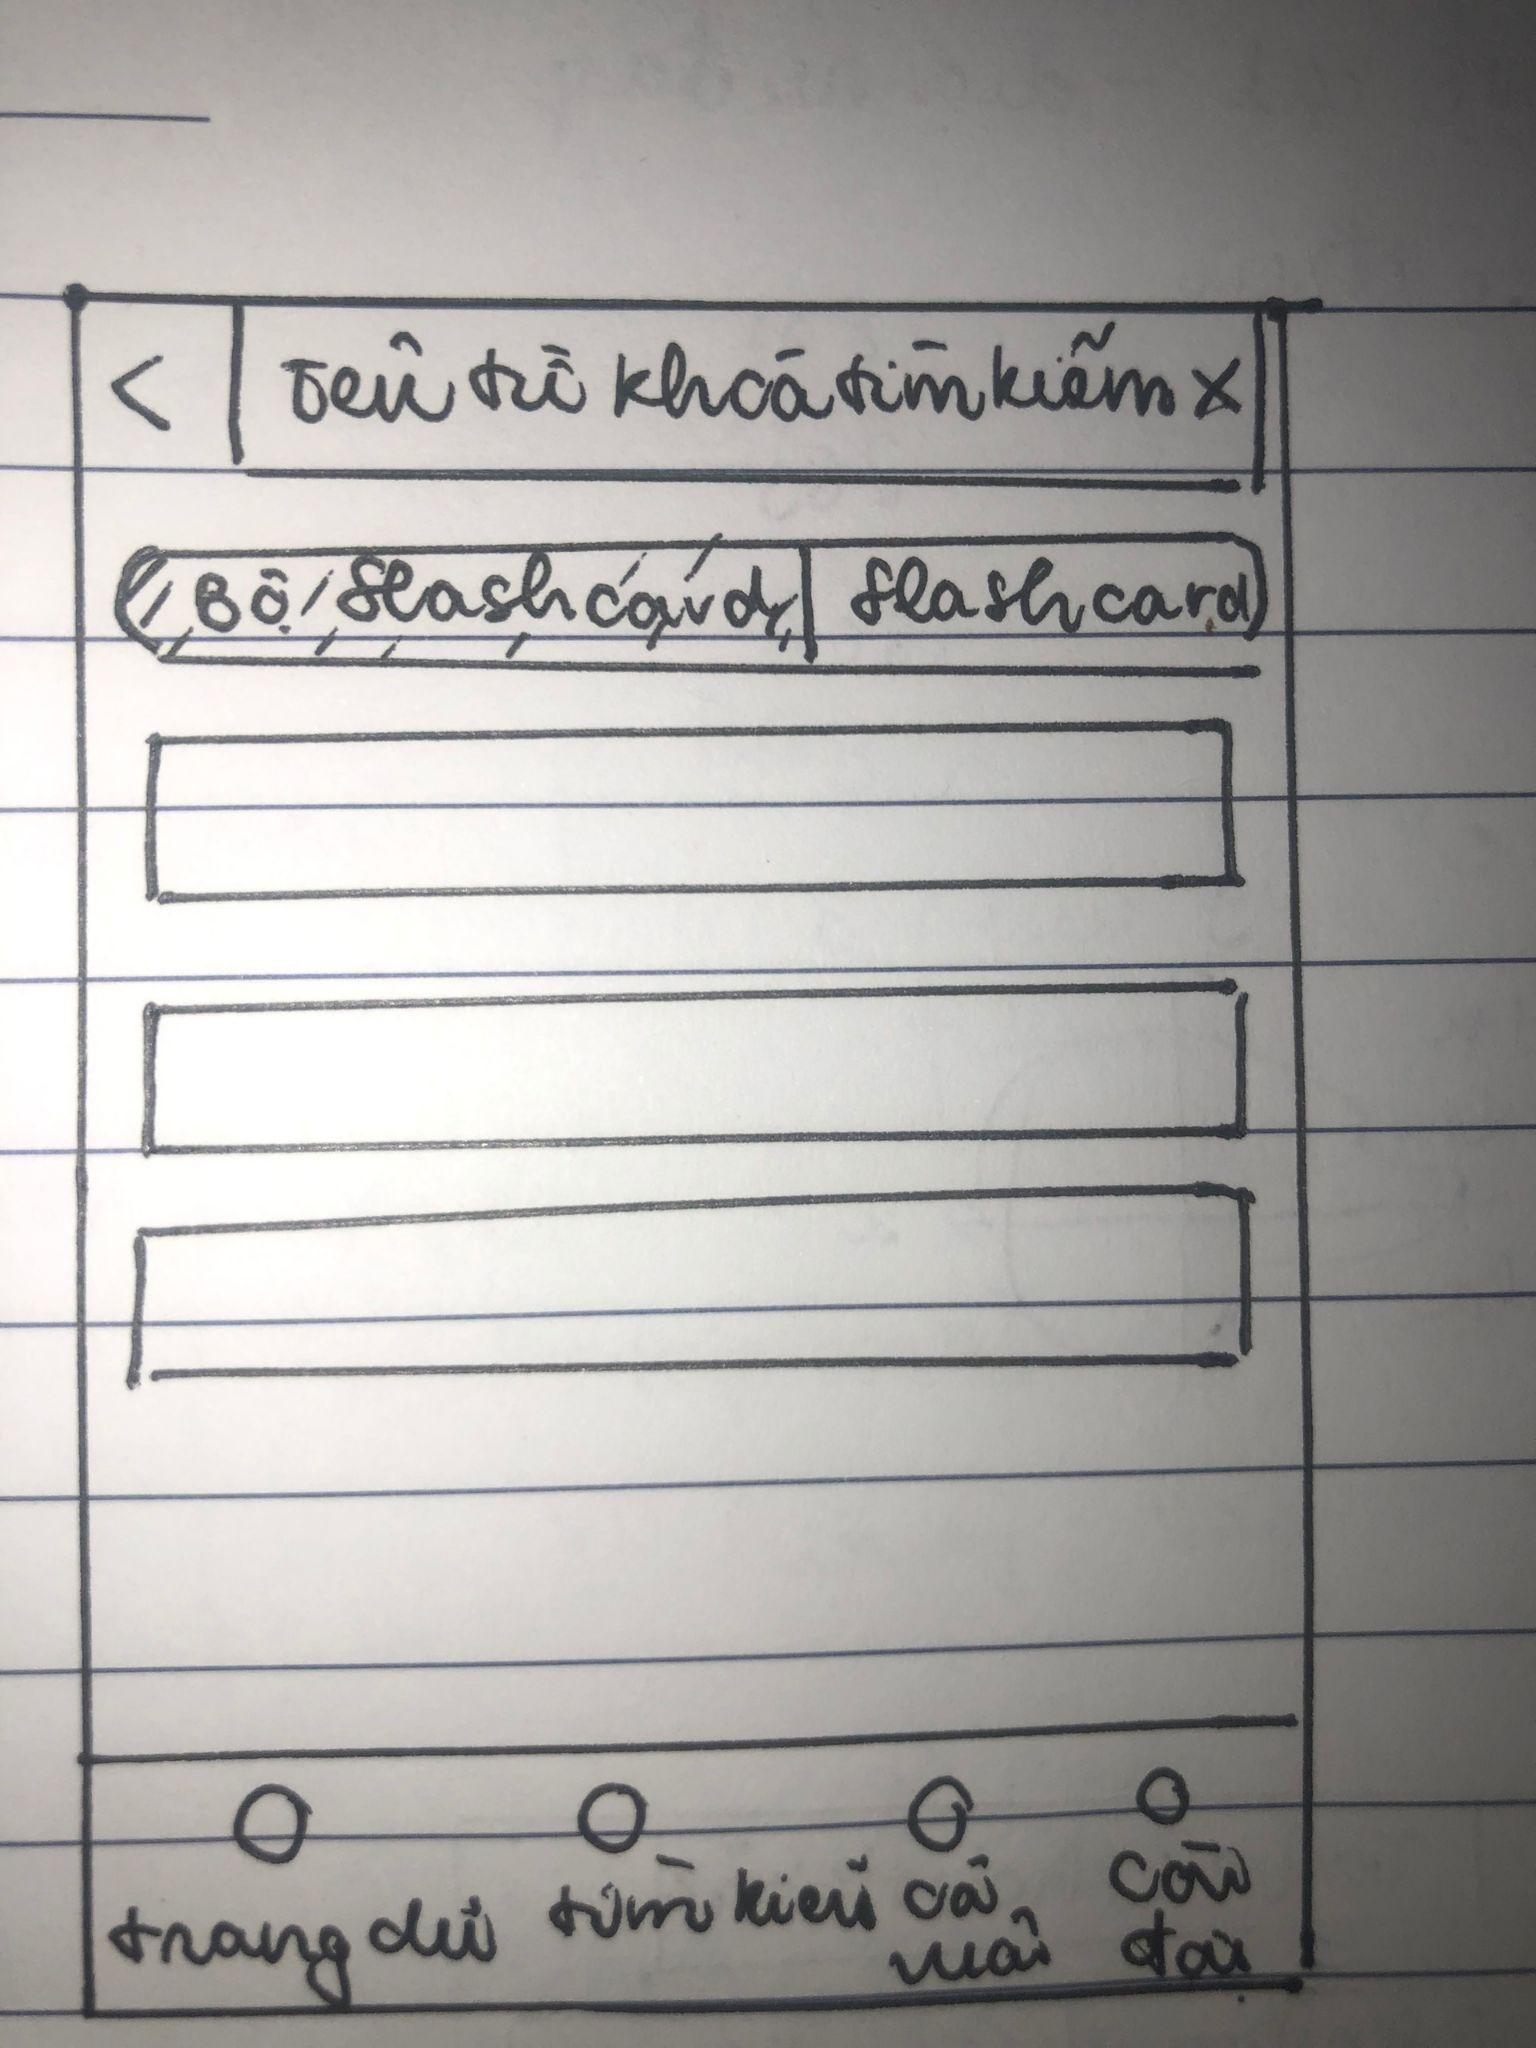 < từ khoá tìm kiếm x
Bộ flashcard flashcard
trang chủ tìm kiếm cá cài
nhân đặt